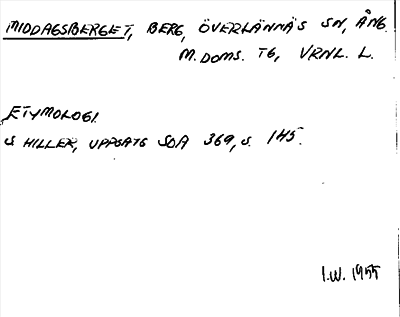 MIDDAGSBERGET, BERG, ÖVERLÄNNÄS SN, ÅNG.
M. DOMS. TG, VRNL. L.
ETYMOLOGI.
S HILLER, UPPSATS SOA 369, S. 145.
I.W. 1955